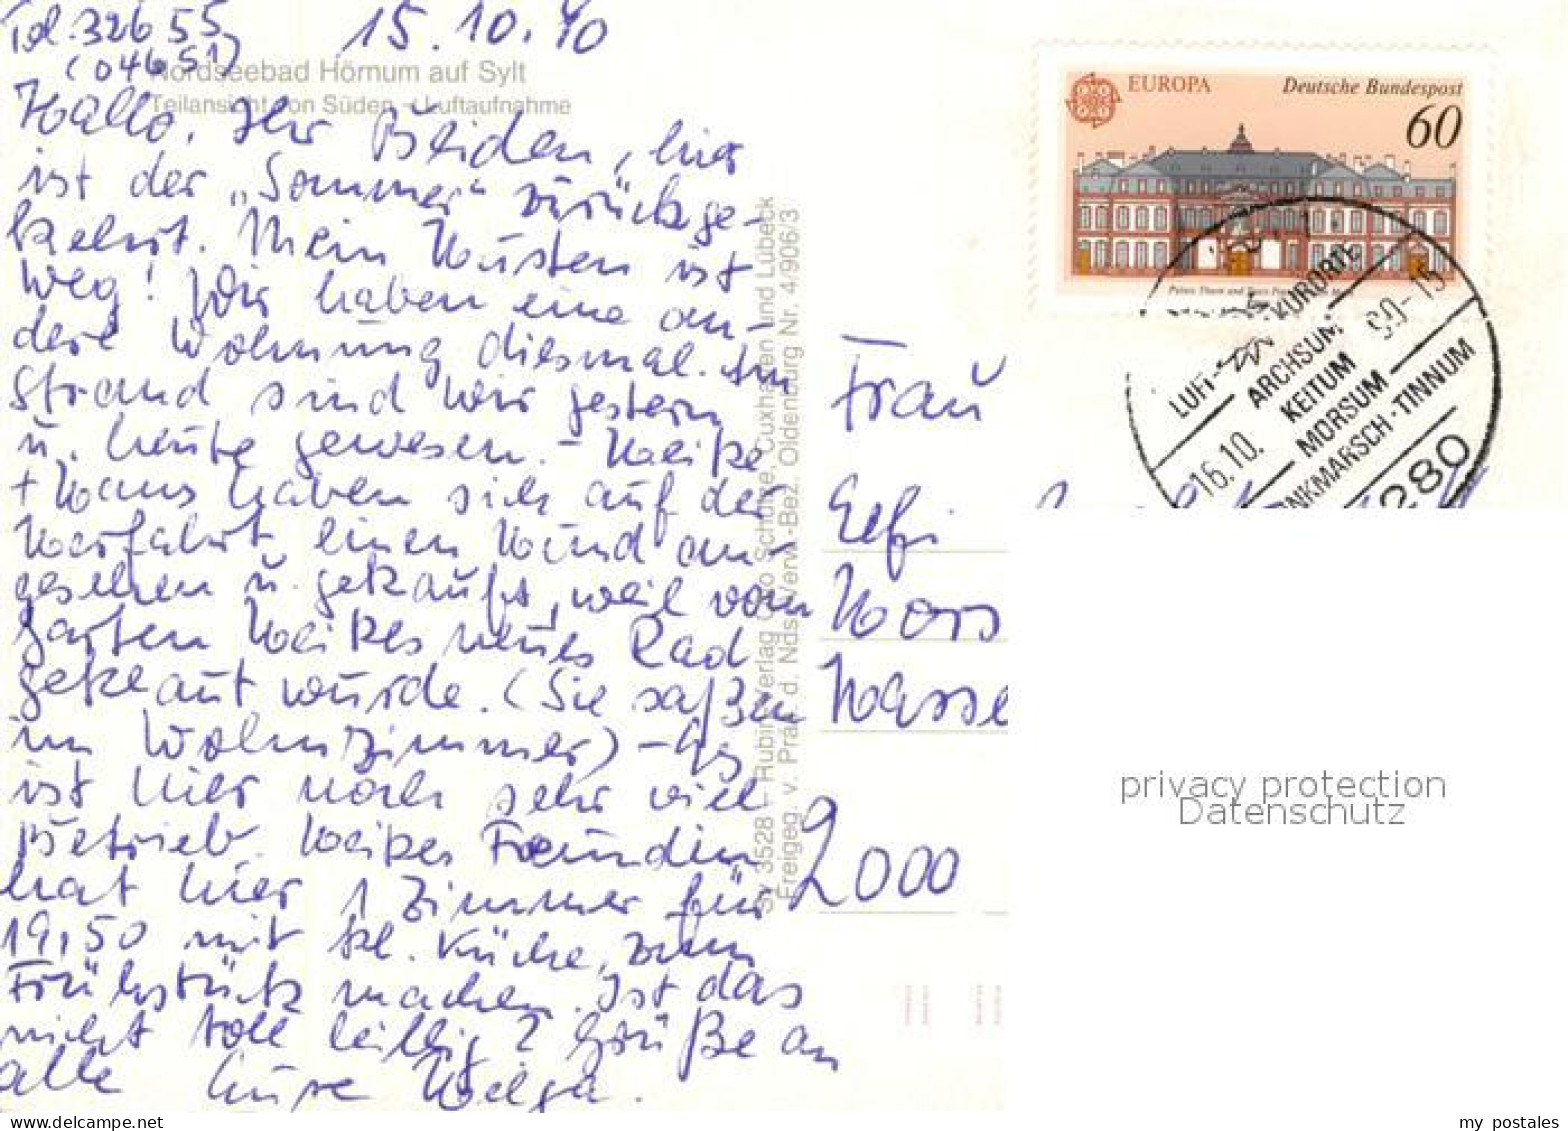 Tel. 32655 15.10.90
(04651)
Nordseebad Hörnum auf Sylt
Teilansicht von Süden - Luftaufnahme
Hallo, Ihr Beiden, hier
ist der „Sommer" zurückge-
kehrt. Mein Husten ist
weg! Wir haben eine an-
dere Wohnung diesmal. Am
Strand sind wir gestern
u. heute gewesen. - Heike
+ Hans haben sich auf der
Herfahrt einen Hund an-
gesehen u. gekauft, weil vom
Garten Heikes neues Rad
geklaut wurde. (Sie saßen
im Wohnzimmer) - Es
ist hier noch sehr viel
Betrieb. Heikes Freundin
hat hier 1 Zimmer für
19,50 mit kl. Küche, zum
Frühstück machen. Ist das
nicht toll billig? Grüße an
alle Eure Helga.
Sy 3528 - Rubin-Verlag Otto Schütze, Cuxhaven und Lübeck
Freigeg. v. Präs. d. Nds. Verw.-Bez. Oldenburg Nr. 4/906/3
EUROPA Deutsche Bundespost
60
Palais Thurn und Taxis
KURORTE
LUFT-
ARCHSUM
KEITUM
MORSUM
NKMARSCH · TINNUM
16.10. 90-15
280
Frau
Elfi
Hors
Wasse
2000
privacy protection
Datenschutz
my postales